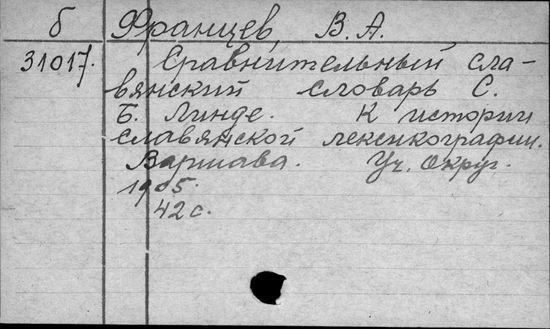 б Францев, В. А.
31017. Сравнительный сла-
вянский словарь С.
Б. Линде. К истории
славянской лексикографии.
Варшава. Уч. Округ.
1905.
42 с.